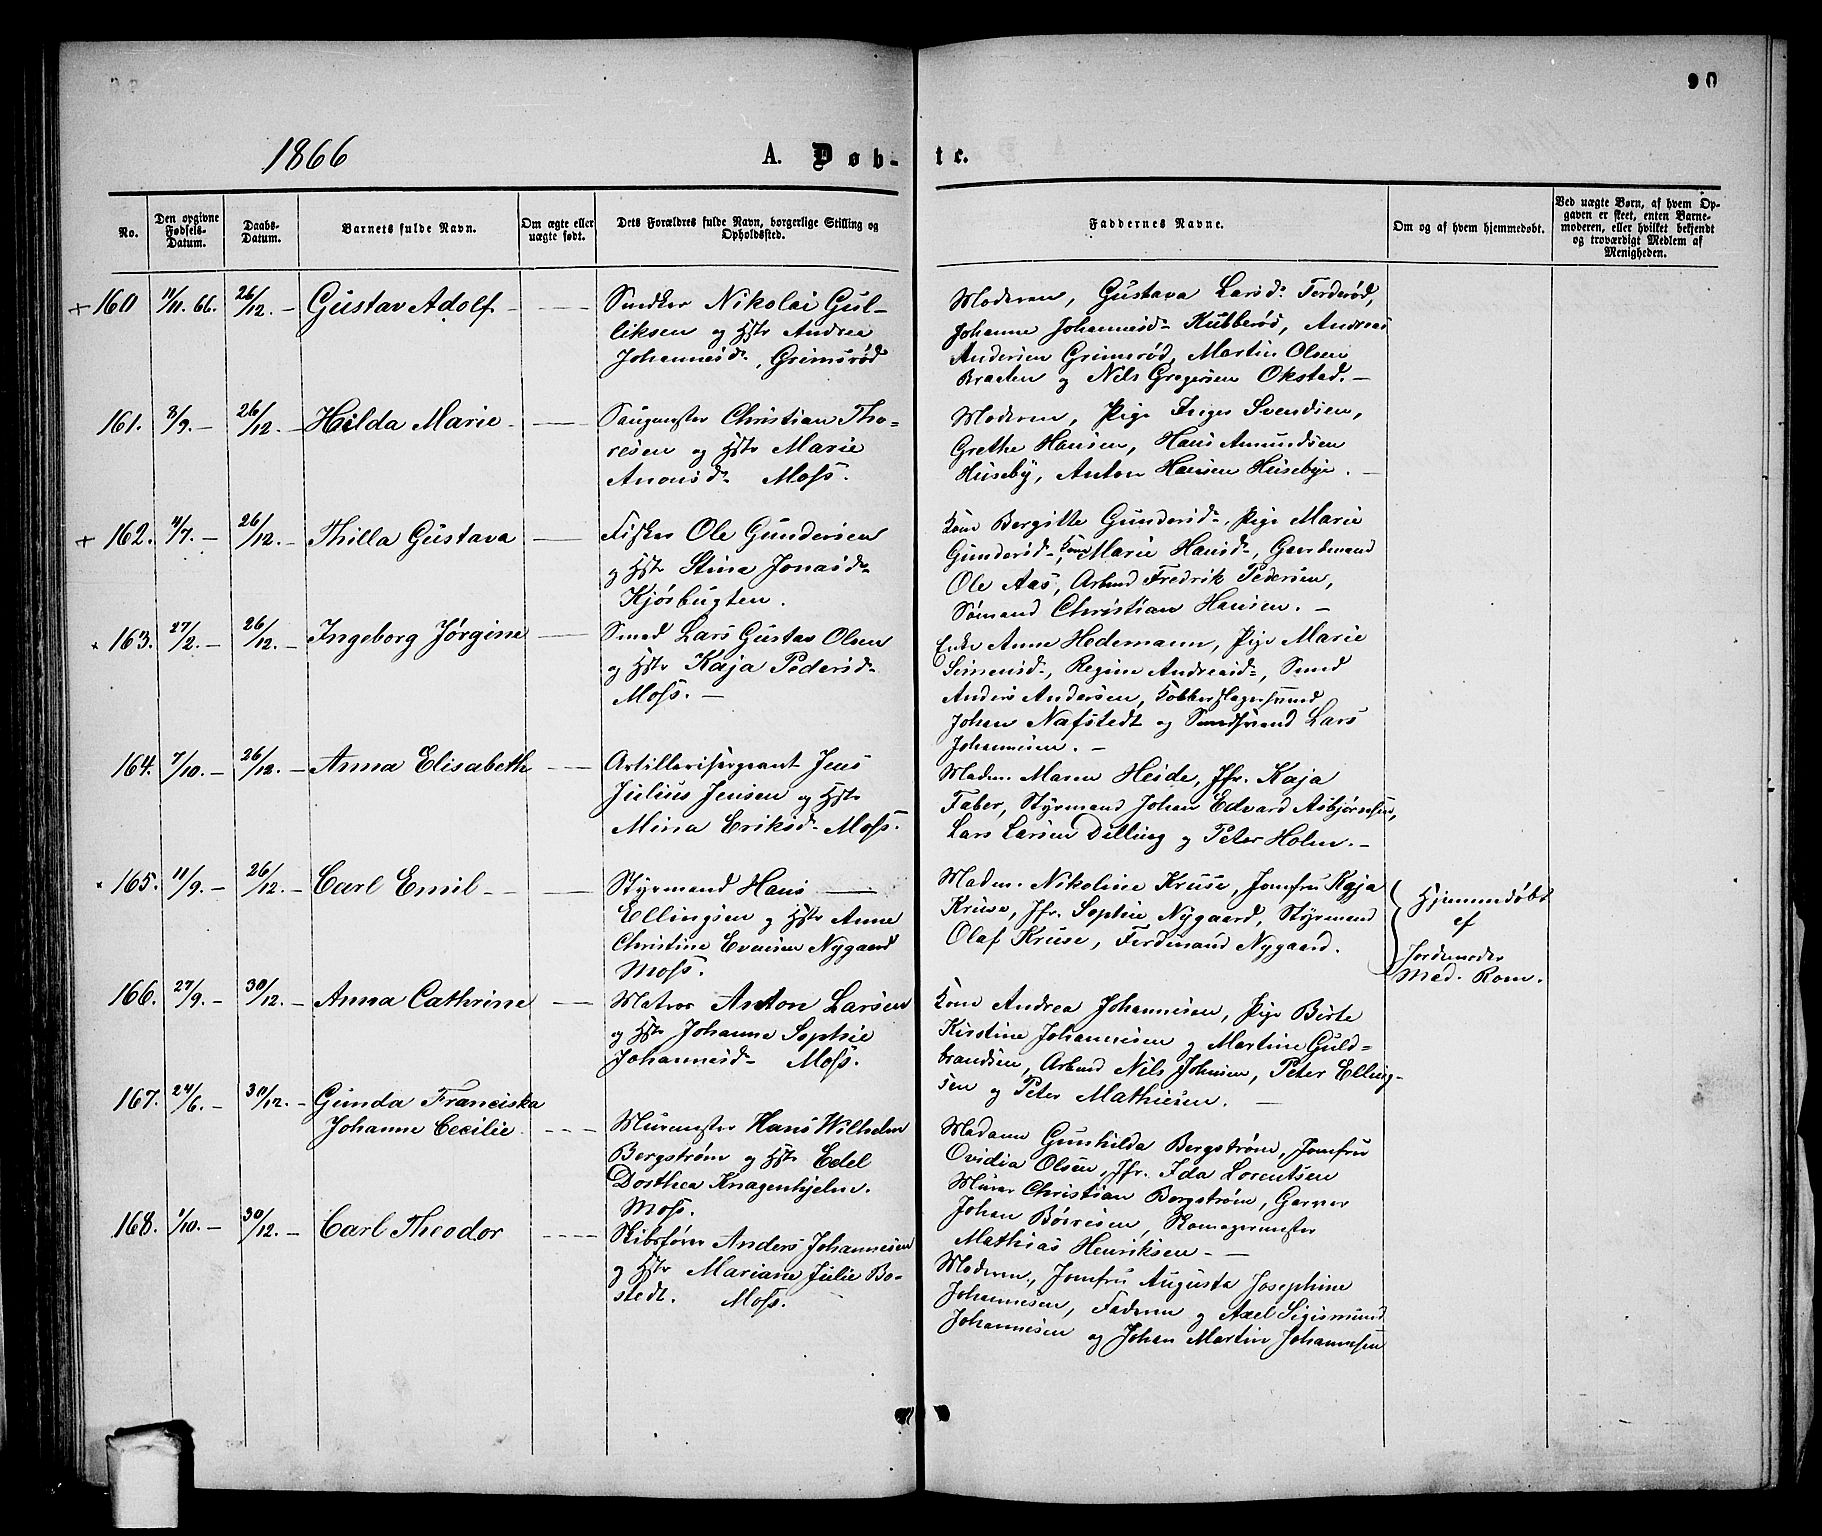 90
1866 A. Døb- te.
No.
Den opgivne Fødsels-Datum.
Daabs-Datum.
Barnets fulde Navn.
Om ægte eller uægte født.
Dets Forældres fulde Navn, borgerlige Stilling og Opholdssted.
Faddernes Navne.
Om og af hvem hjemmedøbt.
Ved uægte Børn, af hvem Opgaven er skeet, enten Barnemoderen, eller hvilket bekjendt og troværdigt Medlem af Menigheden.
+ 160 11/11. 66. 26/12. – Gustav Adolf
Snedker Nikolai Gul-
liksen og Hstr Andrea
Johannesd., Grimsrød
Moderen, Gustava Larsd. Ferderød,
Johanne Johannesd. Kubberød, Andreas
Andersen Grimsrød, Martin Olsen
Braaten og Nils Gregersen Okstad. –
161. 3/9. – 26/12. – Hilda Marie
Saugmester Christian Tho-
resen og Hstr Marie
Anonisd. Moss.
Moderen, Pige Inger Svendsen,
Grethe Hansen, Hans Amundsen
Huseby, Anton Hansen Husebye. –
+ 162. 4/7. – 26/12. – Thilla Gustava
Fisker Ole Gundersen
og Hstr Stina Jonasd.
Kjøsbugten.
Kone Bergitte Gundersd., Pige Marie
Gundersd., Kone Marie Hansd., Gaardmand
Ole Aas, Arbmd Fredrik Pedersen,
Sømand Christian Hansen. –
× 163. 27/2. – 26/12. – Ingeborg Jørgine
Smed Lars Gustav Olsen
og Hstr Kaja Pedersd.
Moss. –
Enke Anne Hedemann, Pige Marie
Simensd., Regine Andreasd., Smed
Anders Andersen, Kobberslagersvend
Johan Nafstedt og Smedsvend Lars
Johannesen. –
164. 7/10. – 26/12. – Anna Elisabeth
Artillerisergeant Jens
Julius Jensen og Hstr
Mina Eriksd. Moss.
Madm. Maren Heide, Jfr. Kaja
Faber, Styrmand Johan Edvard Asbjørnsen,
Lars Larsen Dilling og Peter Holm. –
× 165. 11/9. – 26/12. – Carl Emil
Styrmand Hans
Ellingsen og Hstr Anne
Christine Evensen Nygaard
Moss.
Madm. Nikoline Kruse, Jomfru Kaja
Kruse, Jfr. Sophie Nygaard, Styrmand
Olaf Kruse, Ferdinand Nygaard.
Hjemmedøbt
af
Jordmoder
Mad. Rom.
166. 27/9. – 30/12. – Anna Cathrine
Matros Anton Larsen
og Hstr Johanne Sophie
Johannesd. Moss.
Kone Andrea Johannesen, Pige Birte
Kirstine Johannesen og Martine Guld-
brandsen, Arbmd Nils Johnsen, Peter Elling-
sen og Peter Mathiesen. –
167. 24/6. – 30/12. – Gunda Franciska
Johanne Cecilie
Murmester Hans Wilhelm
Bergstrøm og Hstr Edel
Dorthea Knagenhjelm.
Moss.
Madam Gunhilda Bergstrøm, Jomfru
Ovidia Olsen, Jfr. Ida Lorentsen
Murer Christian Bergstrøm, Garver
Johan Børresen, Remagermester
Mathias Henriksen. –
168. 1/10. – 30/12. – Carl Theodor
Skibsfører Anders Johannesen
og Hstr Mariane Julie Bo-
stedt. Moss.
Moderen, Jomfru Augusta Josephine
Johannesen, Faderen og Axel Sigismund
Johannesen og Johan Martin Johannesen